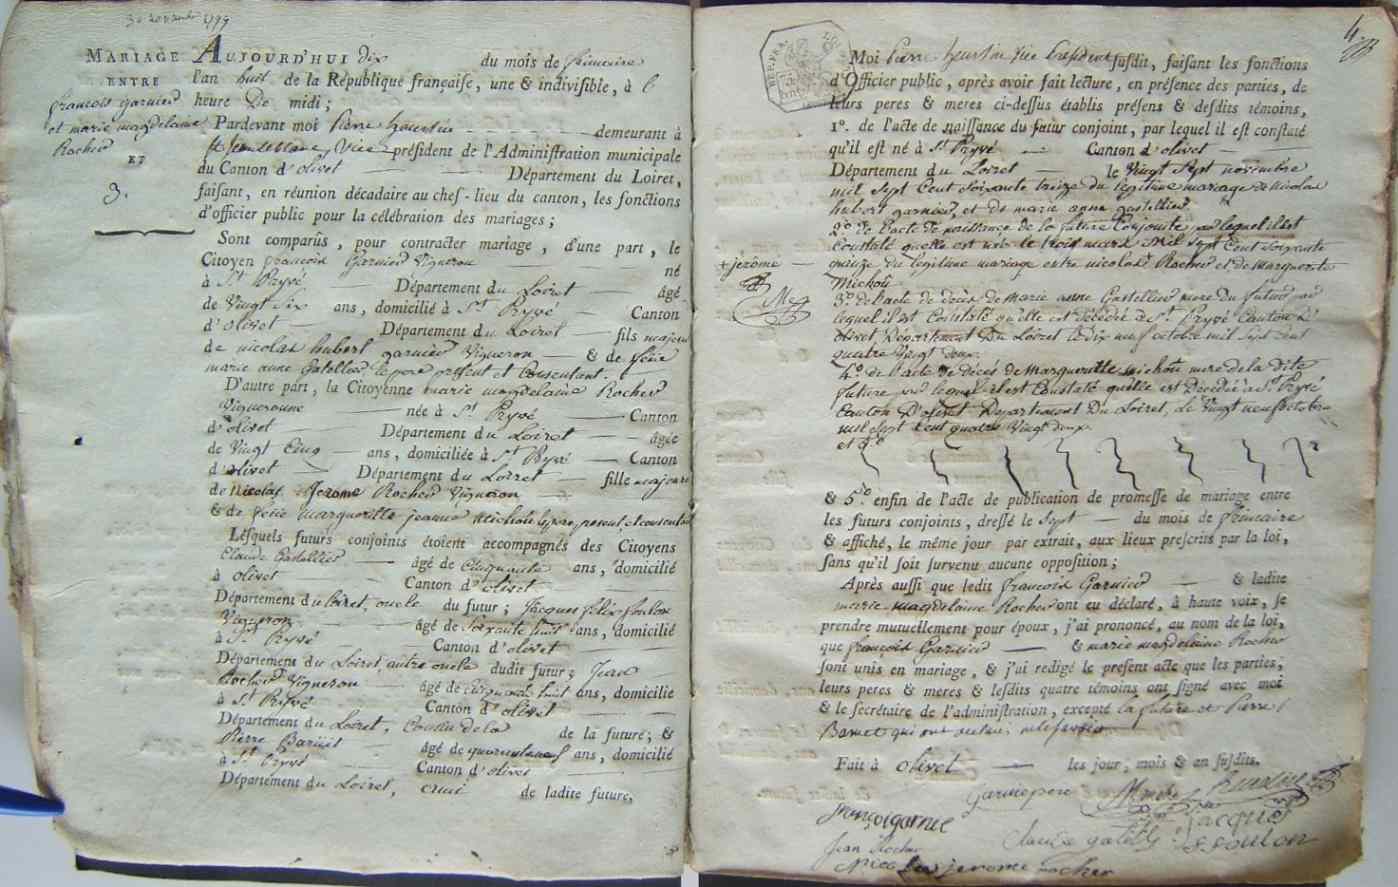 30 novembre 1799
MARIAGE
ENTRE
francois garnier
et marie magdelaine
Rocher
ET
3.
AUJOURD'HUI dix du mois de frimaire
l'an huit de la République françaiſe, une & indiviſible, à
heure de midi;
Pardevant moi Pierre demeurant à
Vice président de l'Adminiſtration municipale
du Canton d'olivet Département du Loiret,
faiſant, en réunion décadaire au chef-lieu du canton, les fonctions
d'officier public pour la célébration des mariages;
Sont comparûs, pour contracter mariage, d'une part, le
Citoyen francois Garnier Vigneron né
à St Pryvé Département du Loiret âgé
de Vingt Six ans, domicilié à St Pryvé Canton
d'olivet Département du Loiret fils majeur
de nicolas hubert garnier Vigneron & de feüe
marie anne Gatellier le pere present et Consentant.
D'autre part, la Citoyenne marie magdelaine Rocher
Vigneronne née à St Pryvé Canton
d'olivet Département du Loiret âgée
de Vingt Cinq ans, domiciliée à St Pryvé Canton
d'olivet Département du Loiret fille majeure
de Nicolas Jerome Rocher Vigneron
& de feüe margueritte jeanne michou le pere, present, et consentant
Leſquels futurs conjoints étoient accompagnés des Citoyens
Claude Gatellier âgé de Cinquante ans, domicilié
à olivet Canton d'olivet
Département du Loiret, oncle du futur; Jacques felix foulon
Vigneron âgé de soixante huit ans, domicilié
à St Pryvé Canton d'olivet
Département du Loiret autre oncle dudit futur; Jean
Rocher Vigneron âgé de cinquante huit ans, domicilié
à St Pryvé Canton d'olivet
Département du Loiret, Cousin de la de la future; &
Pierre âgé de quarante neuf ans, domicilié
à St Pryvé Canton d'olivet
Département du Loiret, ami de ladite future,
4.
Moi Pierre Vice Président ſuſdit, faiſant les fonctions
d'Officier public, après avoir fait lecture, en préſence des parties, de
leurs peres & meres ci-deſſus établis préſens & deſdits témoins,
1°. de l'acte de naiſſance du futur conjoint, par lequel il est conſtaté
qu'il est né à St Pryvé Canton d'olivet
Département du Loiret le Vingt Sept novembre
mil Sept Cent Soixante treize du légitime mariage de nicolas
hubert garnier, et de marie anne gatellier
2° de l'acte de naissance de la future Conjointe par lequel il est
Constaté quelle est née le trois mars Mil Sept Cent Soixante
quinze du legitime mariage entre nicolas Rocher et de marguerite
+ jerôme
Michou
3° de l'acte de décès de marie anne Gatellier mere du futur par
lequel il est Constaté qu'elle est décédée à St Pryvé Canton d'
olivet, Département Du Loiret le dix neuf octobre mil Sept Cent
quatre Vingt deux.
4° de l'acte de décès de Margueritte michou mere de la dite
future par lequel il est Constaté qu'elle est Décédée à St Pryvé
Canton D'olivet Departement Du Loiret, le Vingt neuf octobre
mil Sept Cent quatre Vingt deux
et 5°
& 5° enfin de l'acte de publication de promeſſe de mariage entre
les futurs conjoints, dreſſé le Sept du mois de frimaire
& affiché, le même jour par extrait, aux lieux preſcrits par la loi,
ſans qu'il ſoit ſurvenu aucune oppoſition;
Après auſſi que ledit francois Garnier & ladite
marie magdelaine Rocher ont eu déclaré, à haute voix, ſe
prendre mutuellement pour époux, j'ai prononcé, au nom de la loi,
que francois Garnier & marie magdelaine Rocher
ſont unis en mariage, & j'ai redigé le préſent acte que les parties,
leurs peres & meres & leſdits quatre témoins ont ſigné avec moi
& le ſecrétaire de l'adminiſtration, excepté la future et Pierre
qui ont
Fait à olivet les jour, mois & an ſuſdits.
françois garnie
Garnie pere
Jean Rocher
Claude
Jacque
F foulon
nicolas jerome rocher